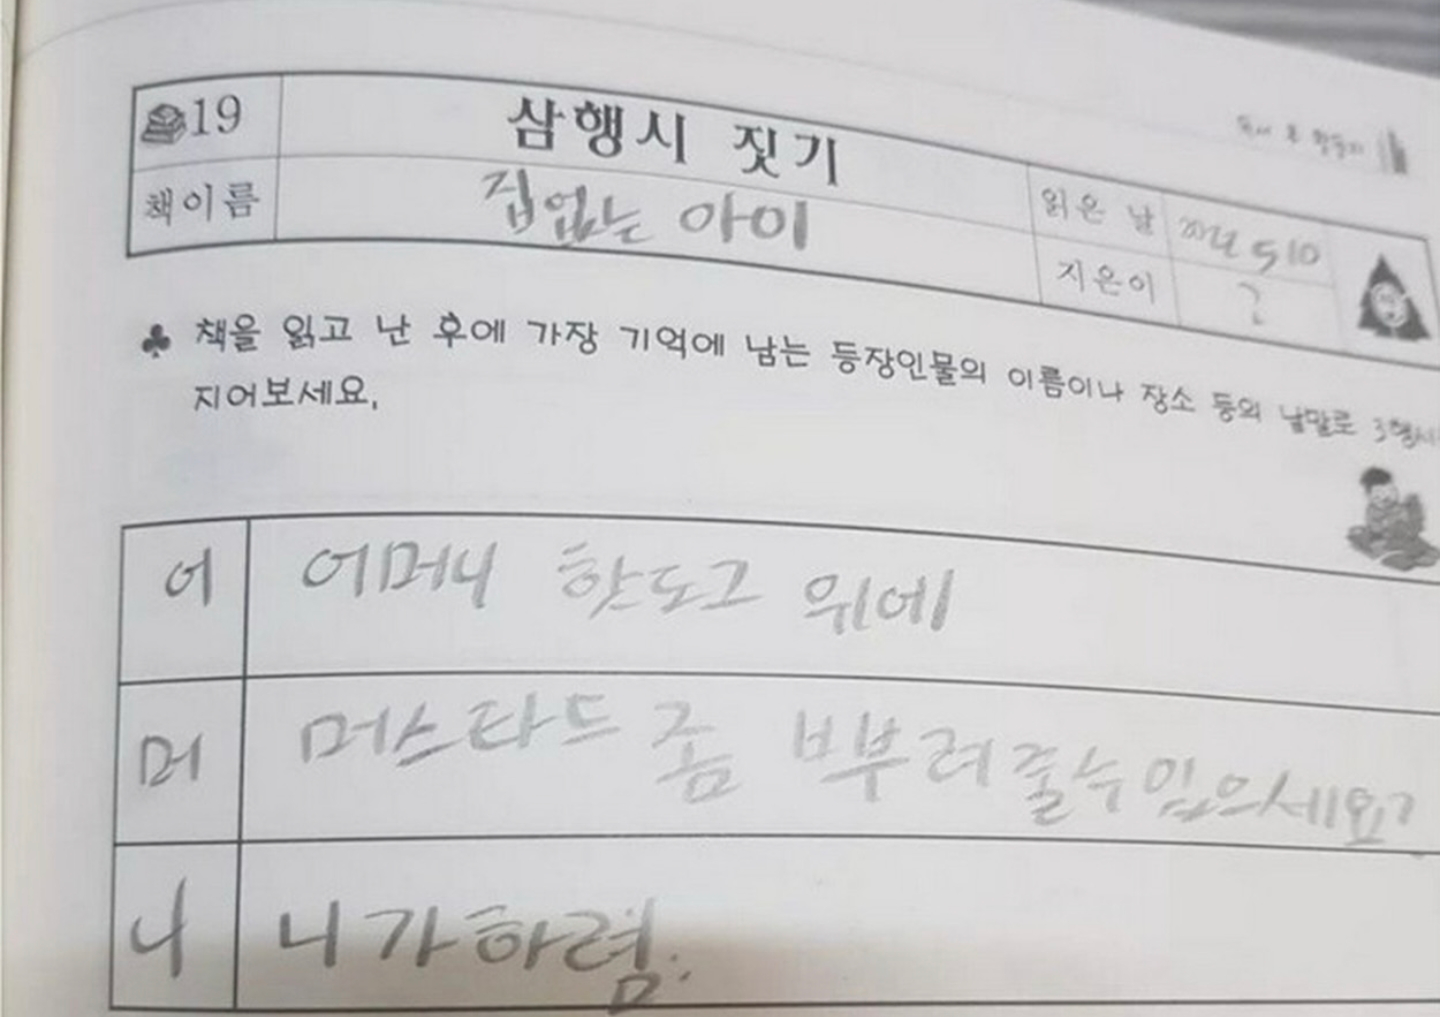 19 삼행시 짓기
책이름 집없는 아이
읽은 날
지은이 ?
♣ 책을 읽고 난 후에 가장 기억에 남는 등장인물의 이름이나 장소 등의 낱말로 3행시
지어보세요.
어 어머니 핫도그 위에
머 머스타드 좀 뿌려줄수있으세요?
니 니가하렴.